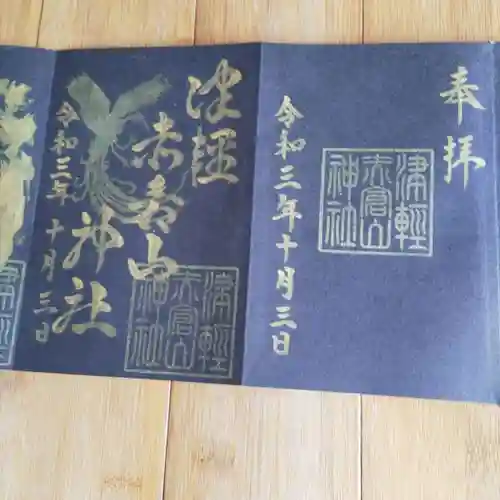 奉拝
津輕
赤倉山
神社
令和三年十月三日
津輕
赤倉山
神社
令和三年十月三日
津輕
赤倉山
神社